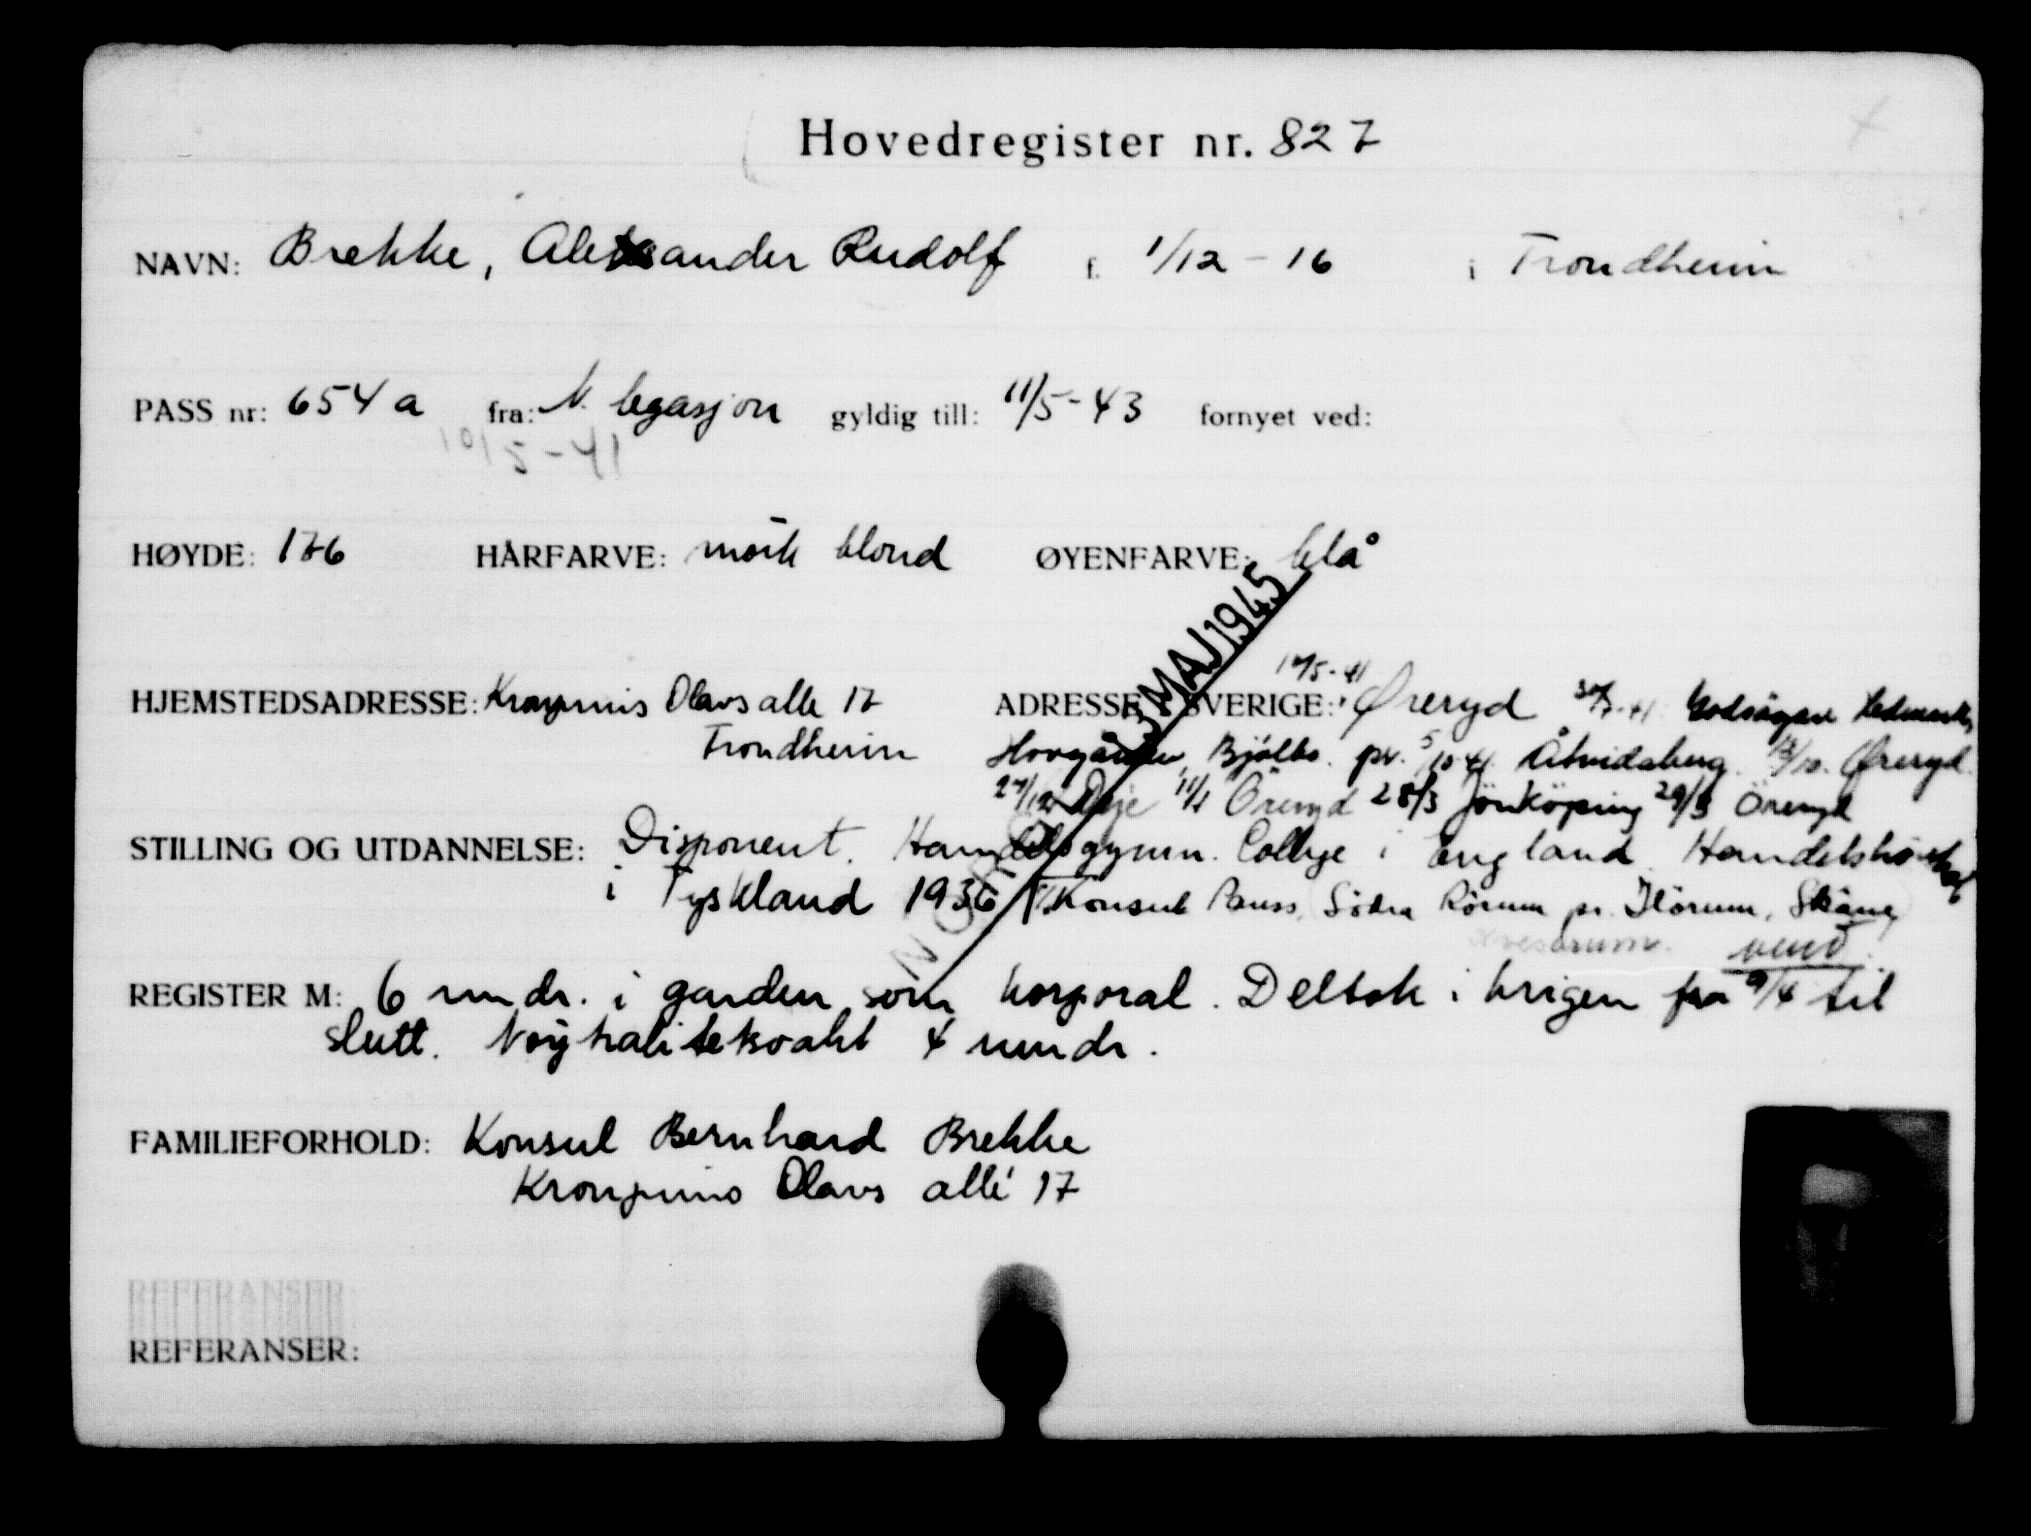 Hovedregister nr. 827
NAVN: Brekke, Aleksander Rudolf f. 1/12 - 16 i Trondheim
PASS nr: 654 a fra: N. legasjon gyldig till: 11/5 - 43 fornyet ved:
10/5 - 41
HØYDE: 176 HÅRFARVE: mørk blond ØYENFARVE: blå
MAJ 1945
HJEMSTEDSADRESSE: Kronprins Olavs alle 17 ADRESSE I SVERIGE: Øreryd Godsägare
Trondheim Bjälbo. pr. 5/10 41 Åtvidaberg. Øreryd.
Deje 11/1 Öreryd 28/3 Jönköping 29/3 Öreryd
STILLING OG UTDANNELSE: Disponent. Handelsgymn. College i England. Handelshöiskole
i Tyskland 1936 Konsul Södra Rörum pr. Hörum, Skåne
vend
REGISTER M: 6 mndr. i garden som korporal. Deltok i krigen fra 9/4 til
slutt. Nøytralitetsvakt 4 mndr.
FAMILIEFORHOLD: Konsul Bernhard Brekke
Kronprins Olavs allé 17
REFERANSER
REFERANSER: